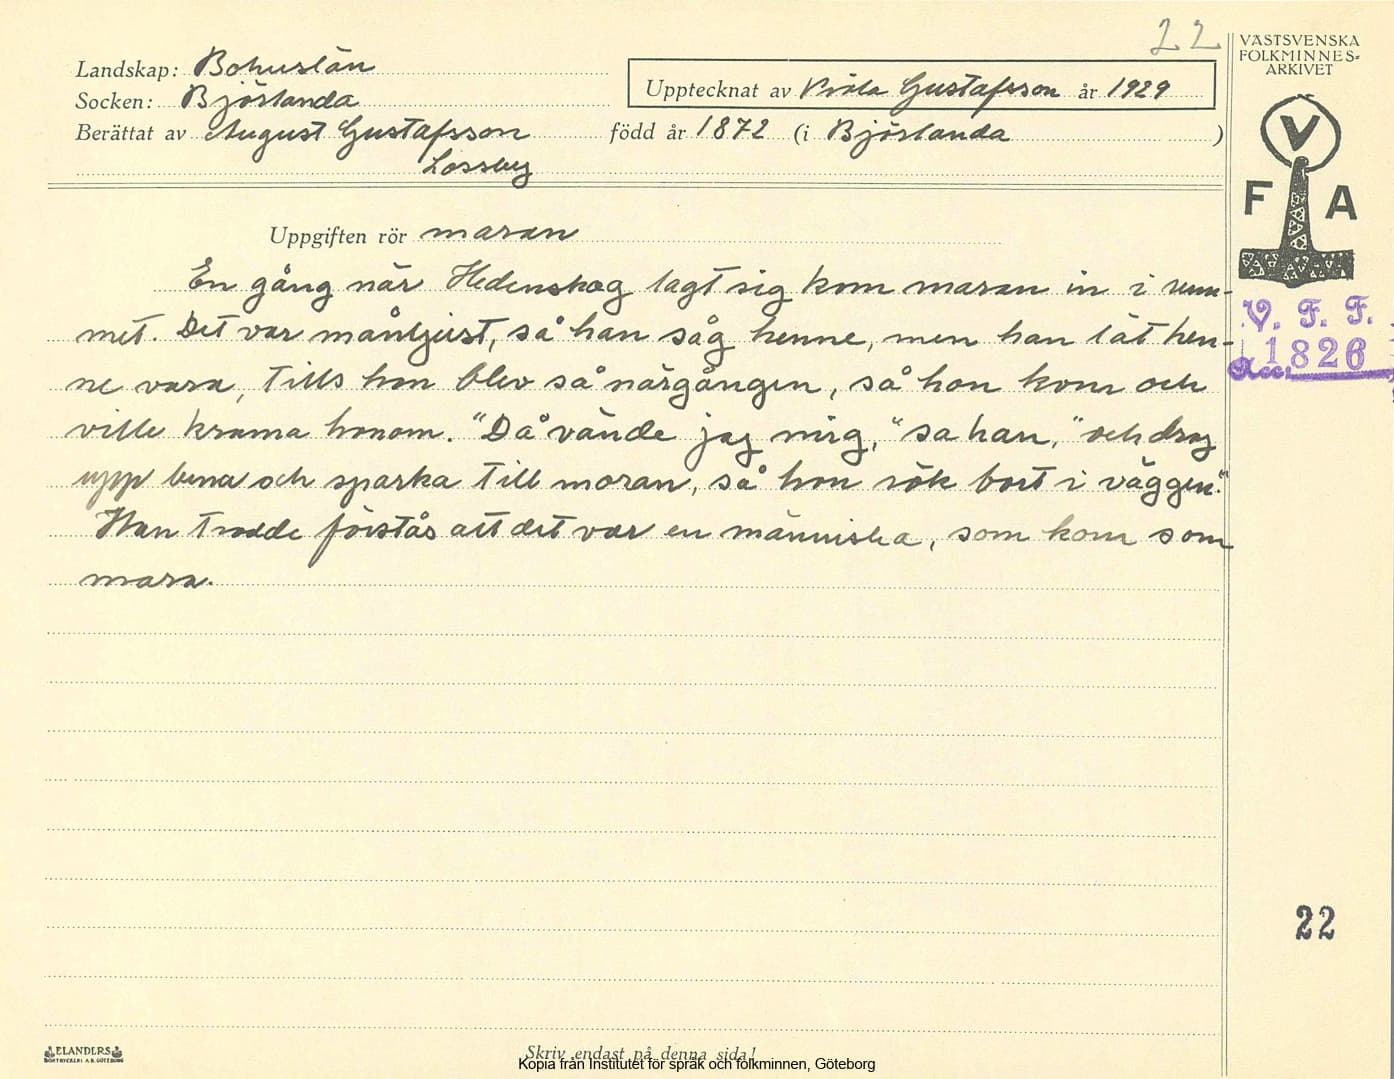 22
Landskap: Bohuslän
Socken: Björlanda
Upptecknat av Viola Gustafsson år 1929
Berättat av August Gustafsson född år 1872 (i Björlanda )
Lossby
VÄSTSVENSKA
FOLKMINNES-
ARKIVET
V
F A
Uppgiften rör maran
En gång när Hedenskog lagt sig kom maran in i rum-
met. Det var månljust, så han såg henne, men han lät hen-
ne vara, tills hon blev så närgången, så hon kom och
ville krama honom. "Då vände jag mig," sa han, "och drog
upp bena och sparka till maran, så hon rök bort i väggen."
Han trodde förstås att det var en människa, som kom som
mara.
V. F. F.
Acc. 1826
22
ELANDERS
BOKTRYCKERI A.B. GÖTEBORG
Skriv endast på denna sida!
Kopia från Institutet för språk och folkminnen, Göteborg